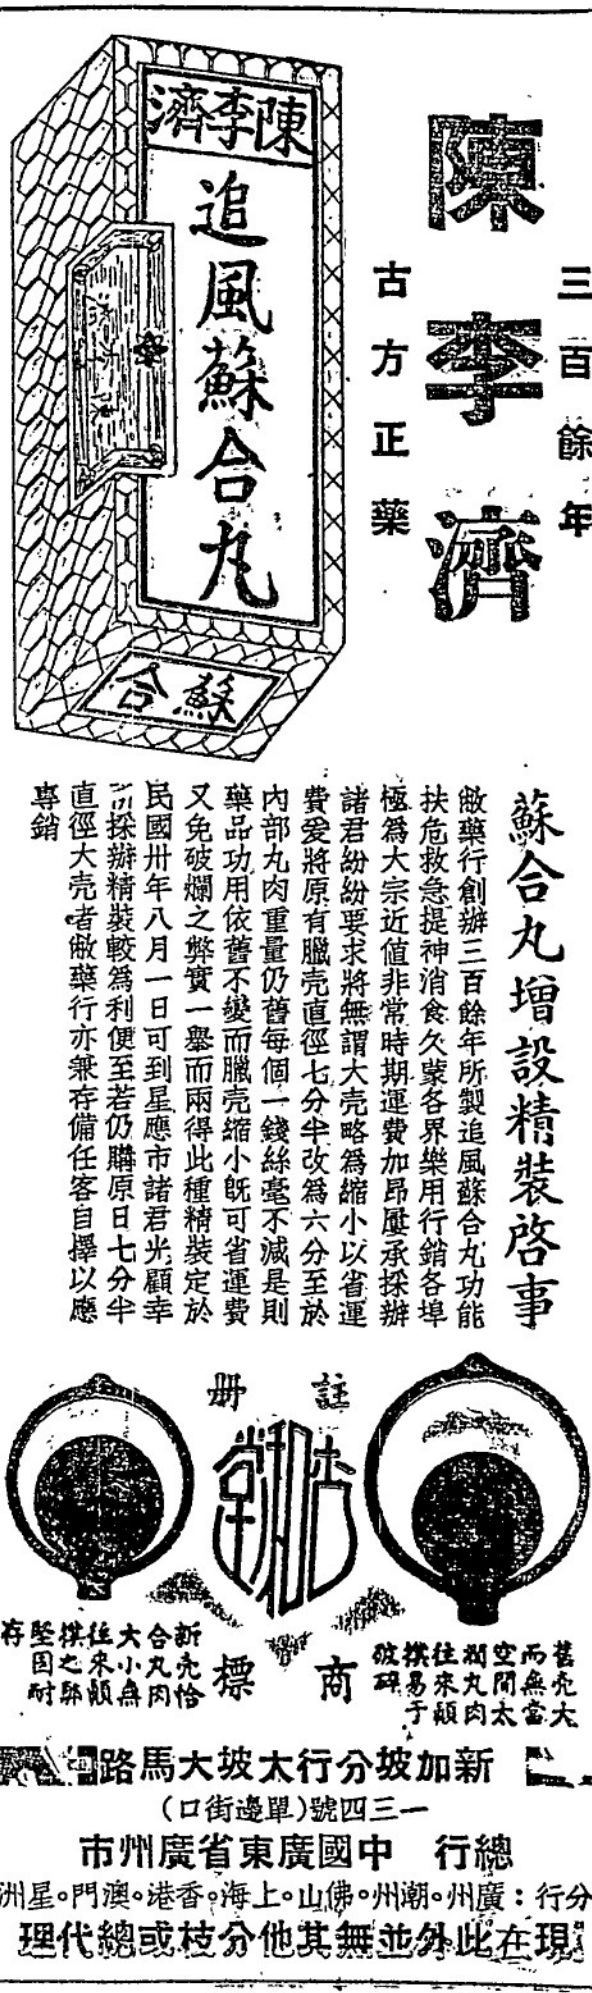 三百餘年
陳李濟
古方正藥
陳李濟
追風蘇合丸
蘇合
蘇合丸增設精裝啓事
敝藥行創辦三百餘年所製追風蘇合丸功能
扶危救急提神消食久蒙各界樂用行銷各埠
極爲大宗近值非常時期運費加昂屢承採辦
諸君紛紛要求將無謂大壳略爲縮小以省運
費爰將原有臘壳直徑七分半改爲六分至於
內部丸肉重量仍舊每個一錢絲毫不減是則
藥品功用依舊不變而臘壳縮小旣可省運費
又免破爛之弊實一舉而兩得此種精裝定於
民國卅年八月一日可到星應市諸君光顧幸
採辦精裝較爲利便至若仍購原日七分半
直徑大壳者敝藥行亦兼存備任客自擇以應
專銷
註册
商標
舊壳大
而無當
空間太
濶丸肉
往來顛
撲易于
破碎
新壳恰
合丸肉
大小無
往來顛
撲之弊
堅固耐
存
新加坡分行大坡大馬路
一三四號(單邊街口)
總行 中國廣東省廣州市
分行：廣州。潮州。佛山。上海。香港。澳門。星洲
現在此外並無其他分枝或總代理